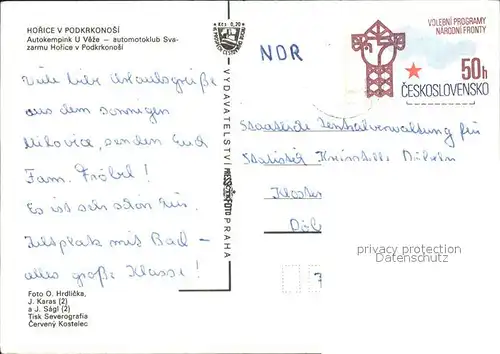 HOŘICE V PODKRKONOŠÍ
Autokempink U Věže — automotoklub Sva-
zarmu Hořice v Podkrkonoší
Viele liebe Urlaubsgrüße
aus dem sonnigen
Milovice, senden Euch
Fam. Fröbel!
Es ist sehr schön hier.
Zeltplatz mit Bad –
alles große Klasse!
Foto O. Hrdlička,
J. Karas (2)
a J. Ságl (2)
Tisk Severografia
Červený Kostelec
Kčs 0,70
VYDAVATELSTVÍ
PRAHA
VOLEBNÍ PROGRAMY
NÁRODNÍ FRONTY
50h
ČESKOSLOVENSKO
NDR
Staatliche Zentralverwaltung für
Statistik Kreisstelle Döbeln
Kloster
Döb
7
privacy protection
akpool.de